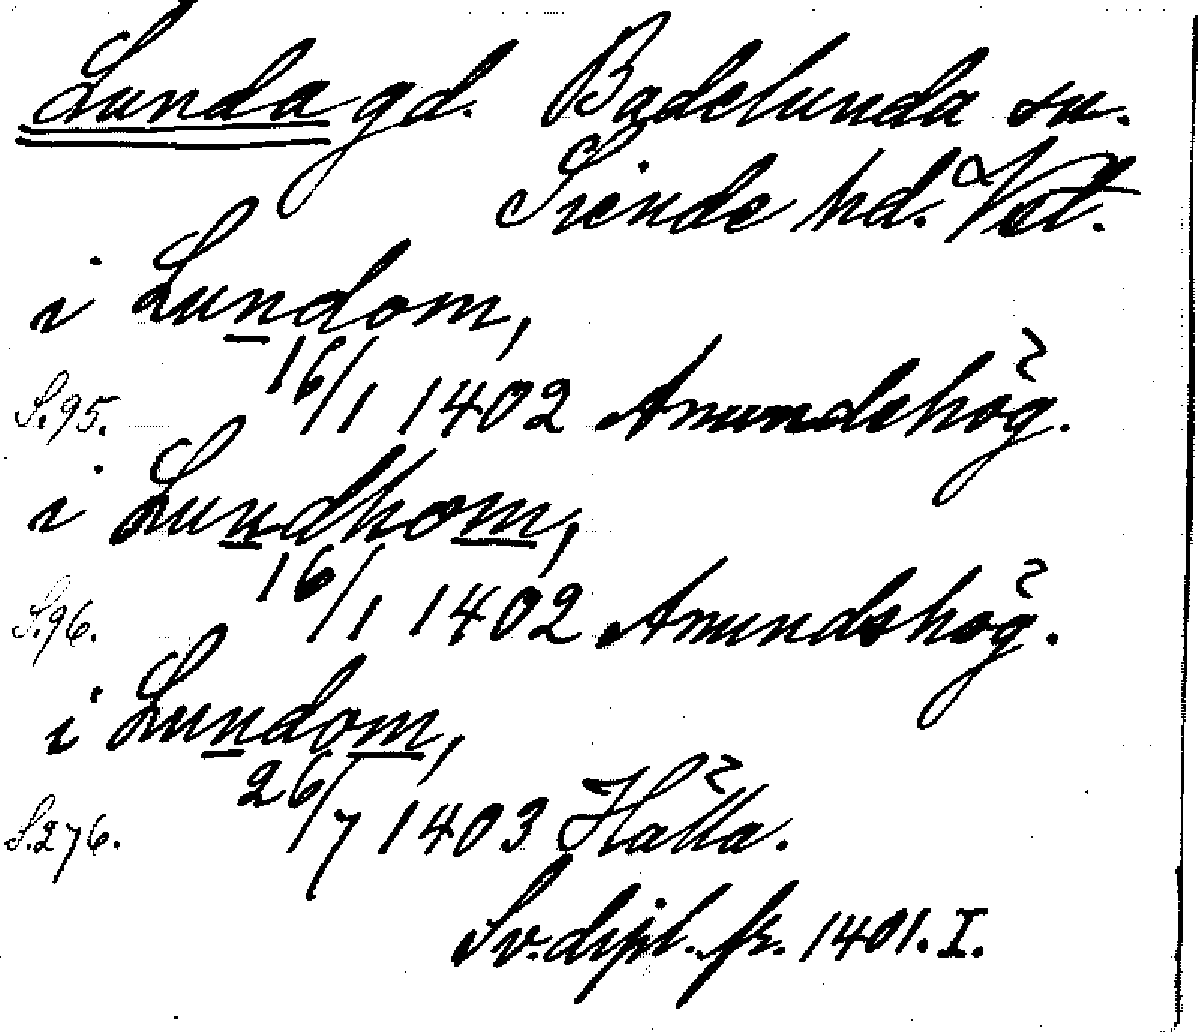 Lunda gd. Badelunda sn.
Siende hd. Vstl.
i Lundom,
S.95. 16/1 1402 Anundshög.
i Lundhom,
S.96. 16/1 1402 Anundshög.
i Lundom,
S.276. 26/7 1403 Hälla.
Sv. dipl. fr. 1401. I.